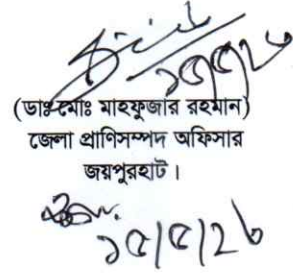 ১৫/৫/২৬
(ডাঃ মোঃ মাহফুজার রহমান)
জেলা প্রাণিসম্পদ অফিসার
জয়পুরহাট।
১৫/৫/২৬